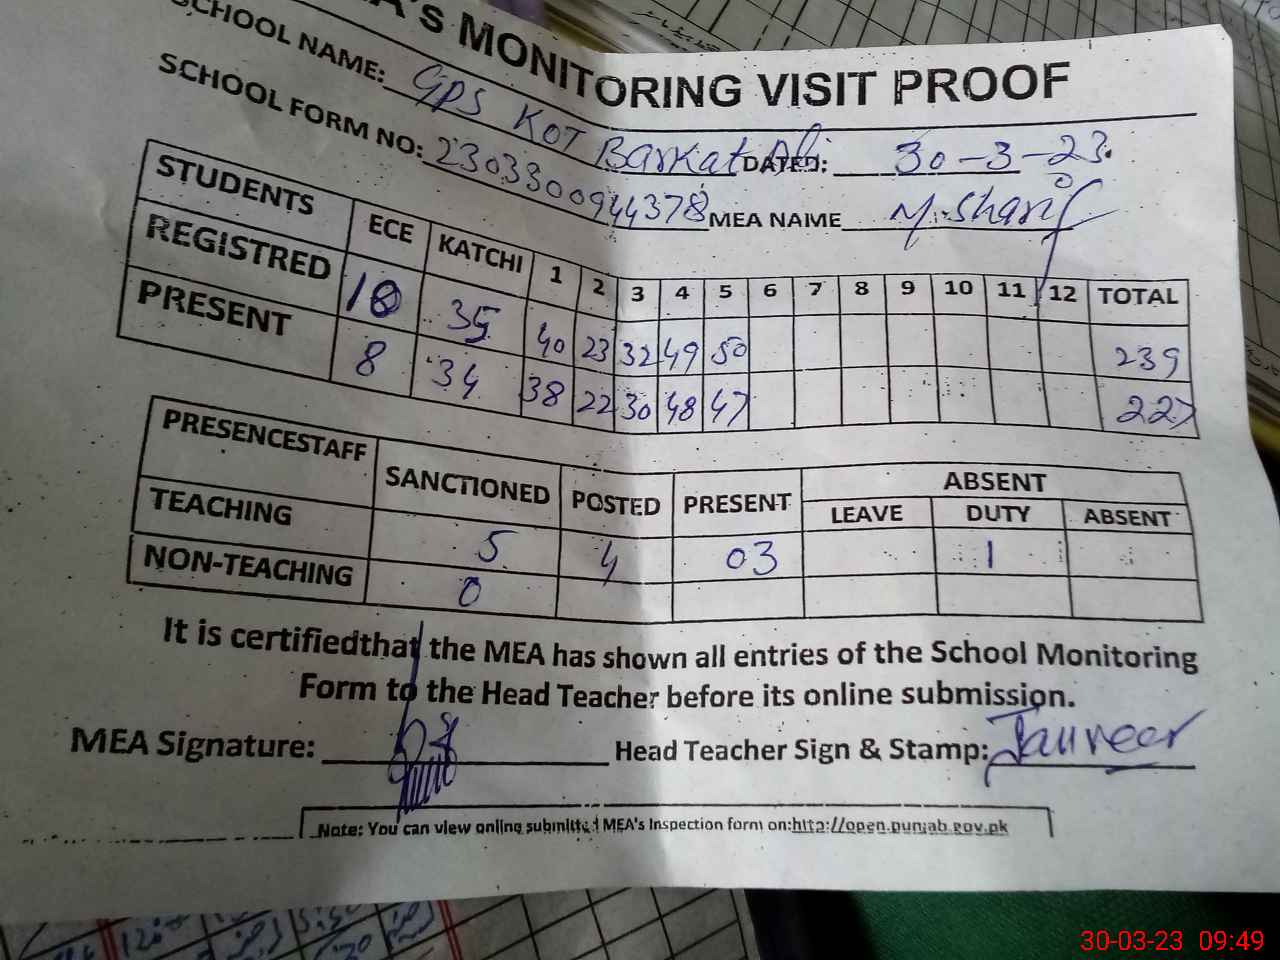 A'S MONITORING VISIT PROOF
SCHOOL NAME: GPS KOT Barkat Ali DATED: 30-3-23.
SCHOOL FORM NO: 230330094378 MEA NAME M. Sharif
STUDENTS ECE KATCHI 1 2 3 4 5 6 7 8 9 10 11 12 TOTAL
REGISTRED 10 35 40 23 32 49 50 239
PRESENT 8 34 38 22 30 48 47 227
PRESENCESTAFF SANCTIONED POSTED PRESENT ABSENT
LEAVE DUTY ABSENT
TEACHING 5 4 03 1
NON-TEACHING 0
It is certifiedthat the MEA has shown all entries of the School Monitoring
Form to the Head Teacher before its online submission.
MEA Signature: Head Teacher Sign & Stamp: Tanveer
Note: You can view online submitted MEA's Inspection form on:http://open.punjab.gov.pk
30-03-23 09:49